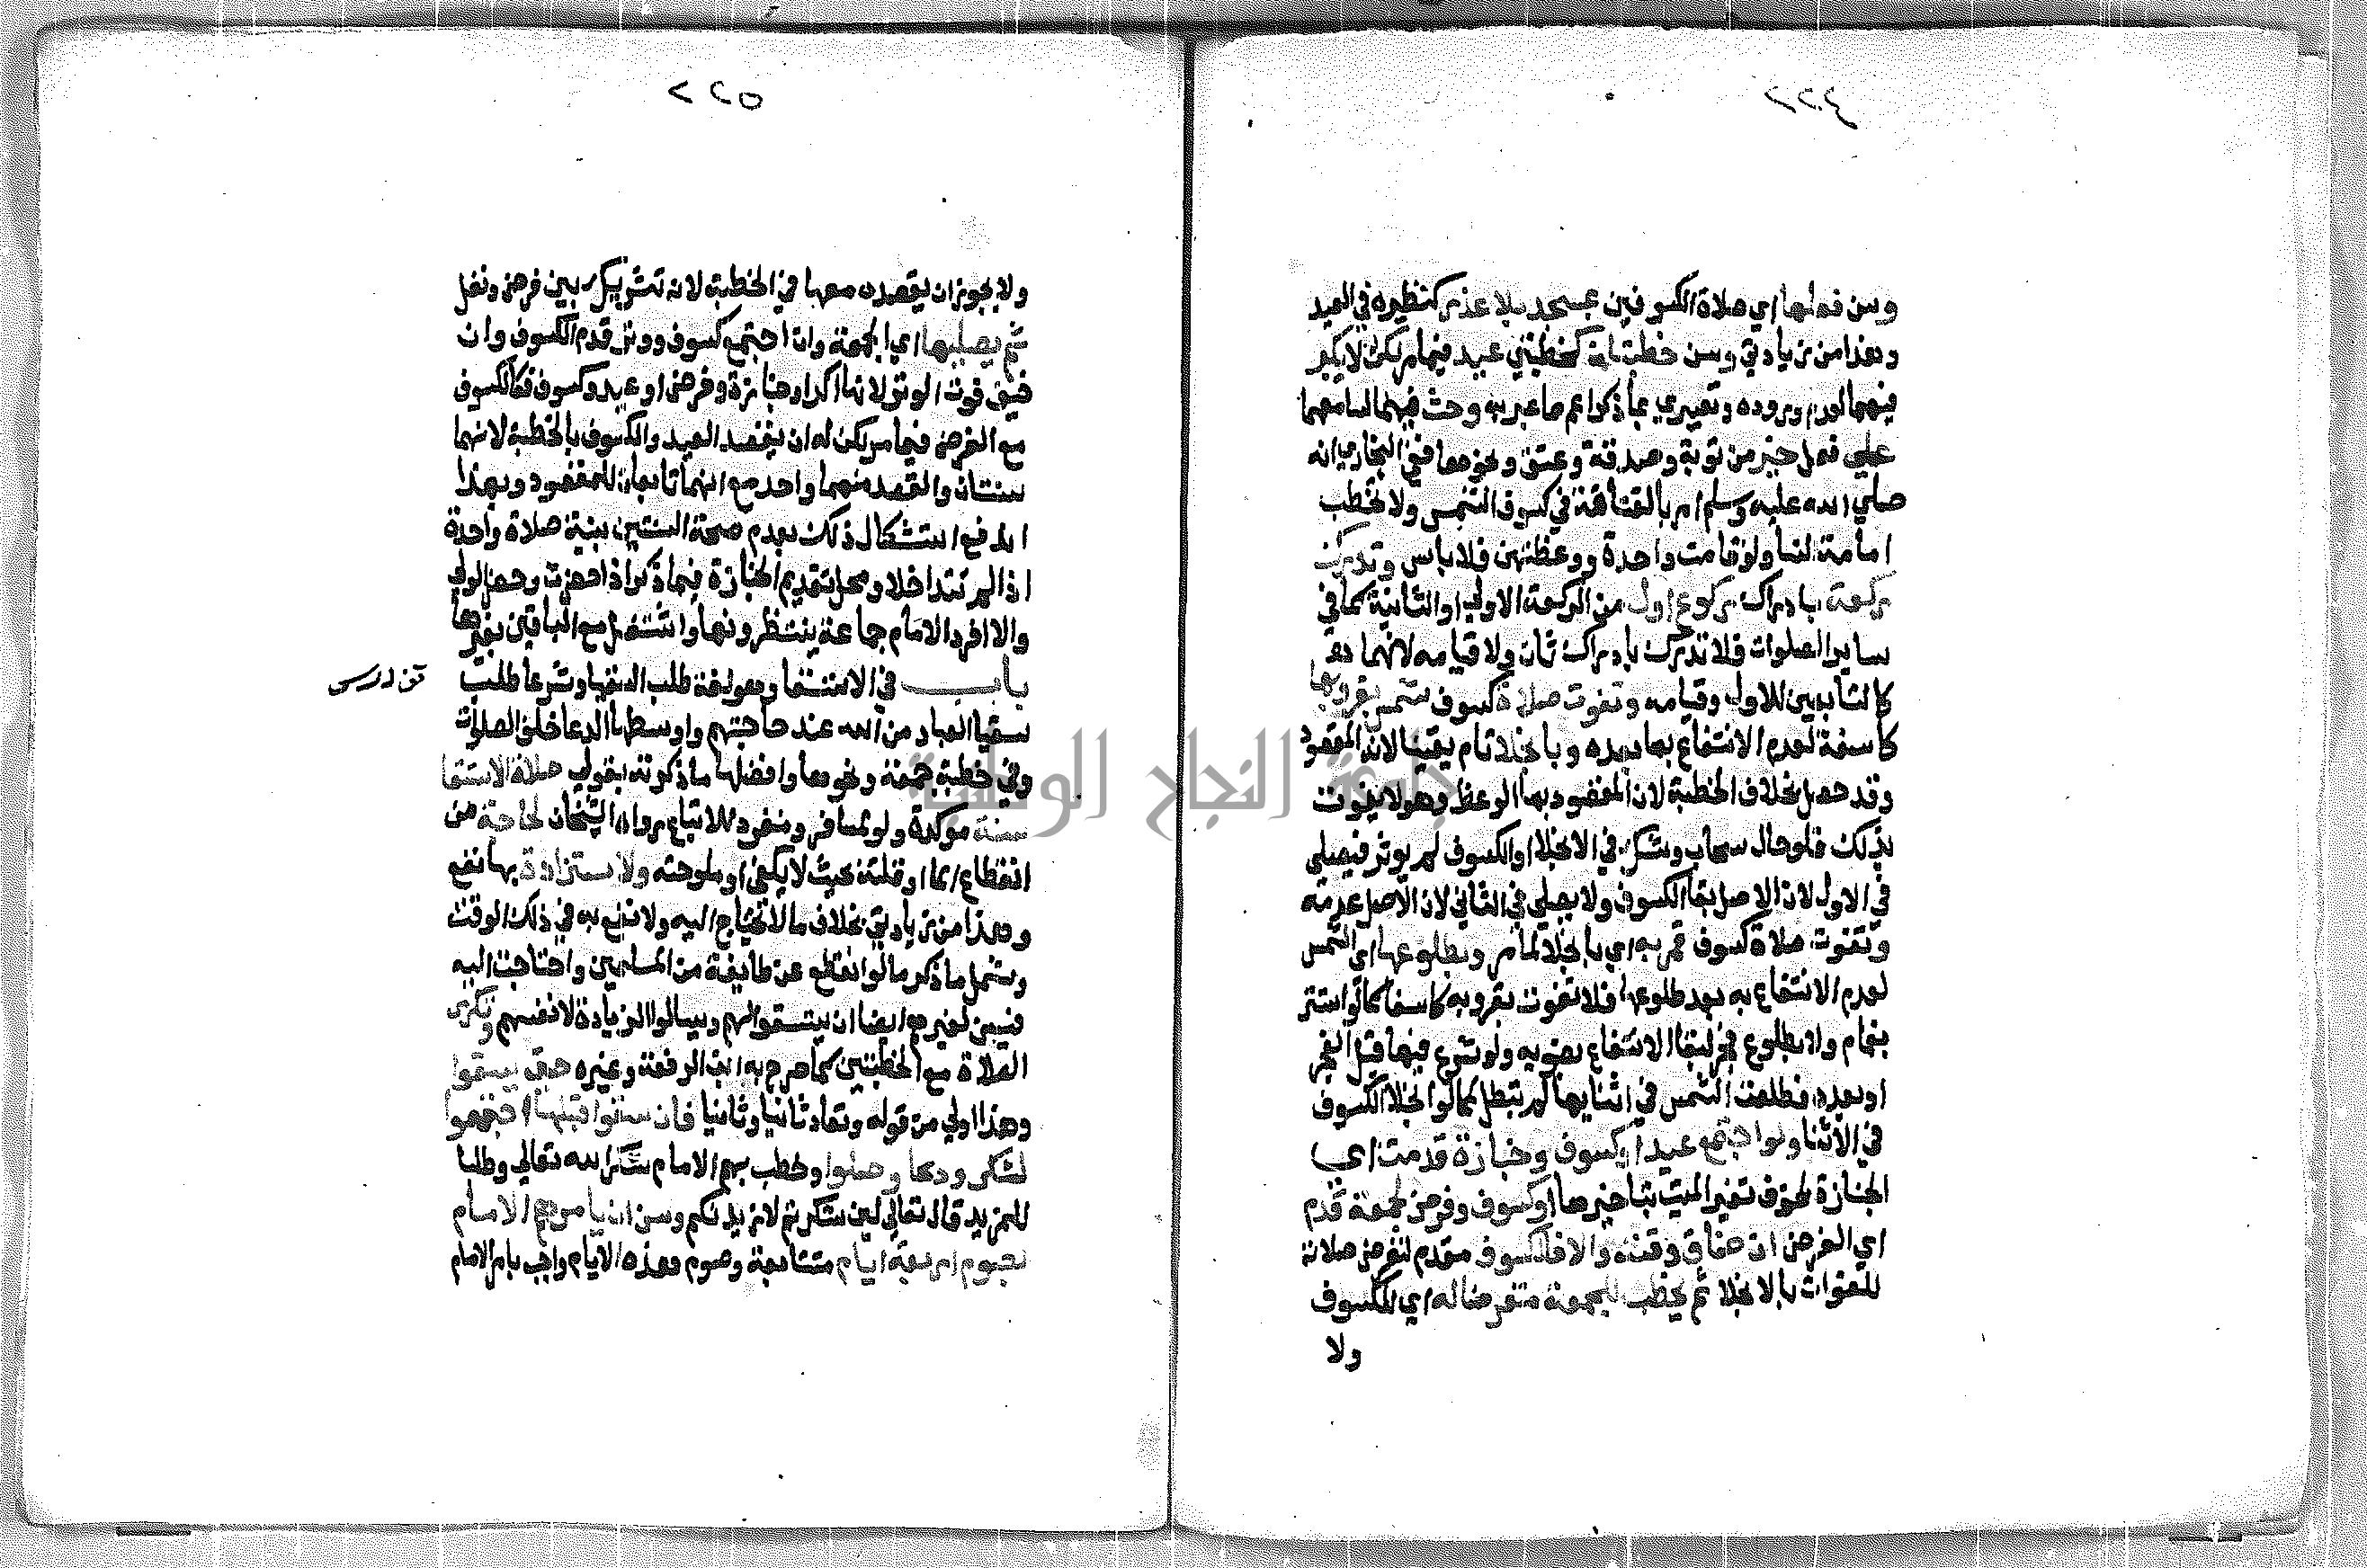 ٢٢٤
وسن فعلها اي صلاة الكسوفين بمسجد بلا عذر كنظيره في العيد
وهذا من زيادتي وسن خطبتان كخطبتي عيد فيما مر لكن لا يكبر
فيهما لعدم وروده وتعبيري بما ذكر اعم مما عبر به وحث فيهما لسامعهما
علي فعل خير من توبة وصدقة وعتق ونحوها ففي البخاري انه
صلي الله عليه وسلم امر بالعتاقة في كسوف الشمس ولا تخطب
امامة النسا ولو قامت واحدة ووعظتهن فلا باس وتدرك
ركعة بادراك ركوع اول من الركعة الاولي او الثانية كما في
ساير الصلوات فلا تدرك بادراك ثان ولا قيامه لانهما
كالتابعين للاول وقيامه وتفوت صلاة كسوف شمس بغروبها
كاسفة لعدم الانتفاع بها بعده وبانجلا تام يقينا لانه المقصود
وقد حصل بخلاف الخطبة لان المقصود بها الوعظ وهو لا يفوت
بذلك فلو حال سحاب وشكر في الانجلا او الكسوف لم يوثر فيصلي
في الاول لان الاصل بقا الكسوف ولا يصلي في الثاني لان الاصل عدمه
وتفوت صلاة كسوف قمر به اي بانجلا لما مر وبطلوعها اي الشمس
لعدم الانتفاع به بعد طلوعها فلا تفوت بغروبه كاسفا كما لو استتر
بغمام ولا بطلوع فجر لبقا الانتفاع بضويه ولو شرع فيها قبل الفجر
او بعده فطلعت الشمس في اثنايها لم تبطل كما لو انجلا الكسوف
في الاثنا ولو اجتمع عيد او كسوف وجنازة قدمت اي
الجنازة لخوف تغير الميت بتاخيرها او كسوف وفرض لجمعة قدم
اي الفرض ان ضاق وقته والا فالكسوف مقدم لتعرض صلاته
للفوات بالانجلا ثم يخطب للجمعة متعرضا له اي للكسوف
ولا
٢٢٥
ولا يجوز ان يقصده معها في الخطبة لانه تشريك بين فرض ونفل
ثم يصليها اي الجمعة وان اجتمع كسوف ووتر قدم الكسوف وان
خيف فوت الوتر لانها اكد او جنازة وفرض او عيد وكسوف فكالكسوف
مع الفرض فيما مر لكن له ان يقصد العيد والكسوف بالخطبة لانهما
سنتان والقصد منهما واحد مع انهما تابعان للمقصود وبهذا
اندفع استشكال ذلك بعدم صحة السنتين بنية صلاة واحدة
اذا لم تتداخلا ومحل تقديم الجنازة فيما ذكر اذا حضرت وحضر الولي
والا افرد الامام جماعة ينتظرونها واشتغل مع الباقين بغيرها
باب في الاستسقا وهو لغة طلب السقيا وشرعا طلب
سقيا العباد من الله عند حاجتهم واوسطها الدعا خلف الصلوات
وفي خطبة جمعة ونحوها وافضلها ما ذكرته بقولي صلاة الاستسقا
سنة موكدة ولو لمسافر ومنفرد للاتباع رواه الشيخان لحاجة من
انقطاع الما او قلته بحيث لا يكفي او ملوحته ولاستزادة بها نفع
وهذا من زيادتي بخلاف ما لا تحتاج اليه ولا نفع به في ذلك الوقت
وشمل ما ذكر ما لو انقطع عن طايفة من المسلمين واحتاجت اليه
فيسن لغيرهم ايضا ان يستسقوا لهم ويسالوا الزيادة لانفسهم وتكرر
الصلاة مع الخطبتين كما صرح به ابن الرفعة وغيره حتى يسقوا
وهذا اولي من قوله وتعاد ثانيا وثانيا فان سقوا قبلها اجتمعوا
لشكر ودعا وصلوا وخطب بهم الامام شكرا لله تعالي وطلبا
للمزيد قال تعالي لين شكرتم لازيدنكم وسن ان يامرهم الامام
بصوم اربعة ايام متتابعة وصوم هذه الايام واجب بامر الامام
جامعة النجاح الوطنية